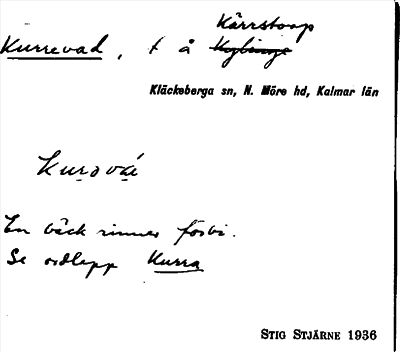 Kärrstorp
Kurrevad, t å Kyb̶i̶n̶g̶e̶
Kläckeberga sn, N. Möre hd, Kalmar län
Kurəvá
En bäck rinner förbi.
Se ordlapp Kurra
STIG STJÄRNE 1936